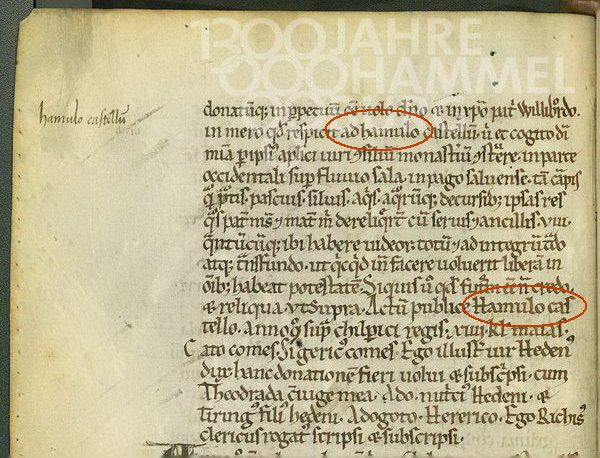 1300 JAHRE
HAMMEL
hamulo castellū
donatūq; inppetuū ēē uolo dño & inxpo patˀ Willibrdo.
in mero qd respicit ad hamulo castellū ū et cogito di
mīa p ipsiˀ aplici uiri & siliū monastiū &struere. inparte
occidentali sup fluuio sala. inpago saluense. tā cāpis
ptis. pascuis. siluis. aqs. aqrūq; decursib; ipsas res
qs patˀ mˢ & matˀ m̄ dereliqrt cū seruis & ancillis. viii.
qntūcūq; ibi habere uideor. totū & ad integrū tdo
atq; tnsfundo. ut qcqd in facere uoluerit liberā in
oīb; habeat potestatē. Siquis ū qd futurū ēē n credo.
& reliqua. vt supra. Actū publice Hamulo cas
tello. anno sup chilpici regis. xiiii kl maias.
Cato comes. Sigericˀ comes. Ego illustˀ uir Hedenˀ
dux hanc donatione fieri uolui & subscpsi. cum
Theodrada ciuge mea. Ado. nutciˀ Hedeni. &
tiringˀ filiˀ hedeni. Adogoto. Hererico. Ego Richisˀ
clericus rogatˀ scripsi & subscripsi.